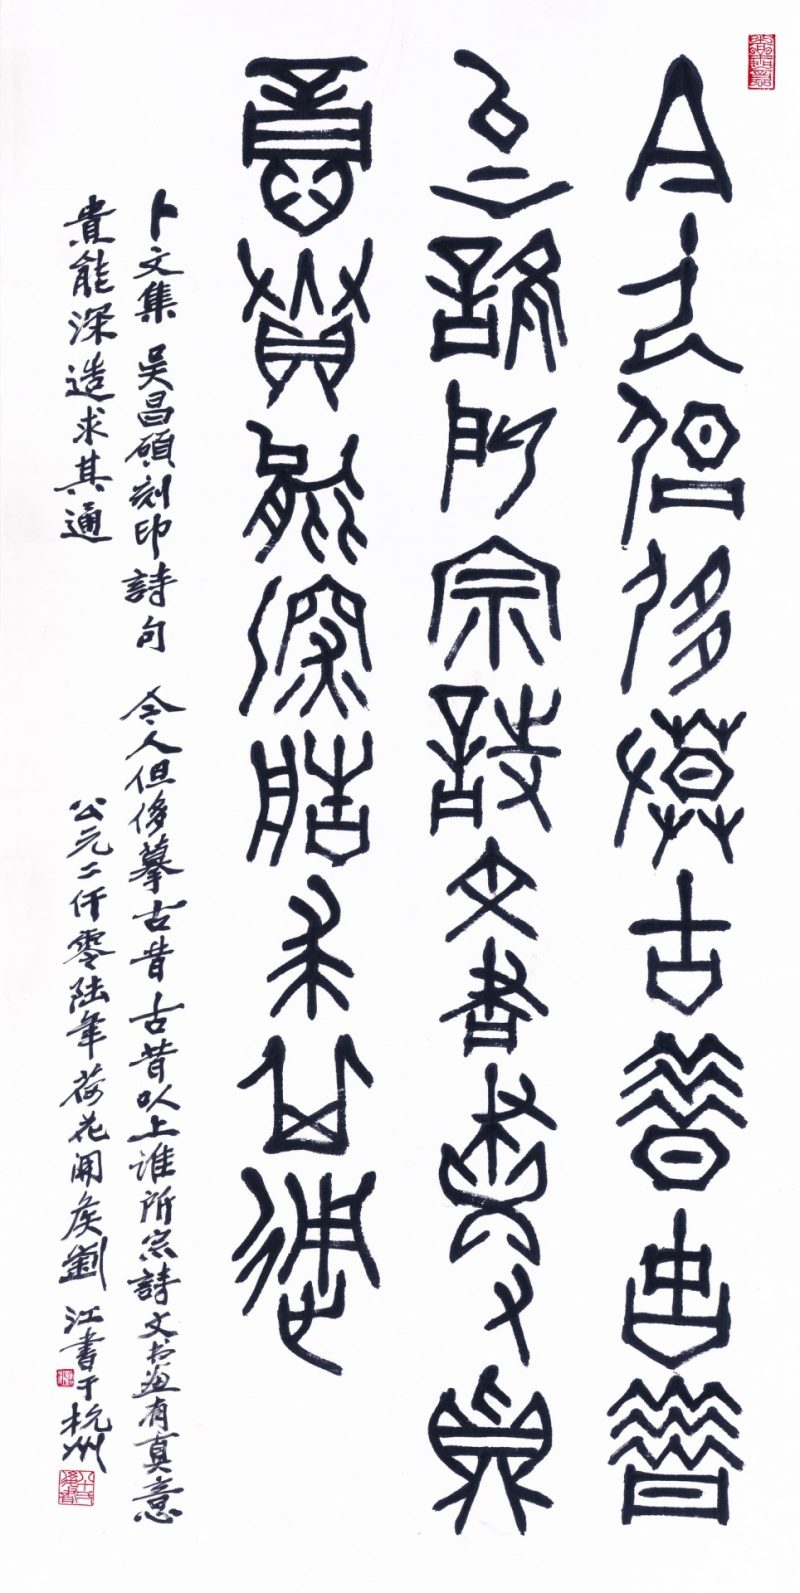 今人但侈摹古昔古昔
以上誰所宗詩文書畫有真
意貴能深造求其通
卜文集 吴昌碩刻印詩句 今人但侈摹古昔古昔以上谁所宗詩文书画有真意
貴能深造求其通 公元二仟零陆年荷花開侯劉江書于杭州